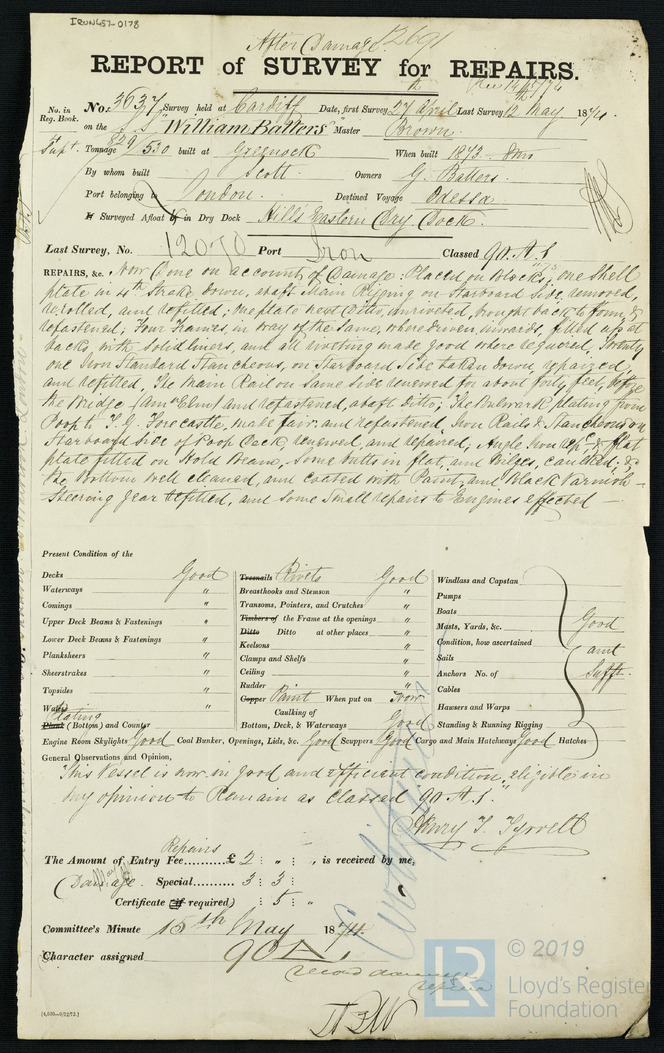 IRON457-0178
After Damage 12691
REPORT of SURVEY for REPAIRS.
No. in Reg. Book.
No. 3637 Survey held at Cardiff Date, first Survey 27th April Last Survey 12th May 1874
on the SS "William Batters" Master Brown
Supt. Tonnage 829/530 built at Greenock When built 1873 - 8mo
By whom built Scott Owners G. Batters
Port belonging to London Destined Voyage Odessa
If Surveyed Afloat or in Dry Dock Hills Eastern Dry Dock.
Last Survey, No. 12070 Port Iron Classed 90.A.1
REPAIRS, &c. Now done on account of Damage: Placed on Blocks; one Shell
plate in 4th Strake down, abaft Main Rigging on Starboard Side, removed,
rerolled, and refitted; one plate next Ditto, unriveted, brought back to form, &
refastened; Four Frames in way of the same, where driven inwards, filled up at
backs with solid liners, and all riveting made good where required, Twenty
one Iron Standard Stancheons, on Starboard Side taken down, repaired,
and refitted, The Main Rail on Same Side renewed for about forty feet, before
the Bridge (Am. Elm) and refastened, abaft ditto; The Bulwark plating from
Poop to T. G. Forecastle, made fair and refastened, Iron Rails & Stancheons on
Starboard Side of Poop Deck renewed, and repaired, Angle Iron & flat
plate fitted on Hold Beam, Some butts in flat, and Bilges, caulked; &
the Bottom well cleaned, and coated with Paint, and Black Varnish -
Steering gear refitted, and some small repairs to Engines effected -
Present Condition of the
Decks Good
Waterways "
Comings "
Upper Deck Beams & Fastenings "
Lower Deck Beams & Fastenings "
Planksheers "
Sheerstrakes "
Topsides "
Wales "
Plating
Plank (Bottom) and Counter
Treenails Rivets Good
Breasthooks and Stemson "
Transoms, Pointers, and Crutches "
Timbers of the Frame at the openings "
Ditto Ditto at other places "
Keelsons "
Clamps and Shelfs "
Ceiling "
Rudder "
Copper Paint When put on Now.
Caulking of
Bottom, Deck, & Waterways Good
Windlass and Capstan
Pumps
Boats
Masts, Yards, &c. Good
Condition, how ascertained
Sails and
Anchors No. of Sufft.
Cables
Hawsers and Warps
Standing & Running Rigging
Engine Room Skylights Good Coal Bunker, Openings, Lids, &c. Good Scuppers Good Cargo and Main Hatchways Good Hatches
General Observations and Opinion,
"This Vessel is now in good and efficient condition, eligible in
my opinion to Remain as Classed 90.A.1."
Henry T. Tyrrell
Repairs
The Amount of Entry Fee........... £ 2 : " : " is received by me,
(Damage. Special.......... 3 : 3 :
Certificate (if required) : 5 : "
Committee's Minute 15th May 1874.
Character assigned 90A1
record damage
repairs
[4,500—9/12/73.]
© 2019
LR
Lloyd's Register
Foundation